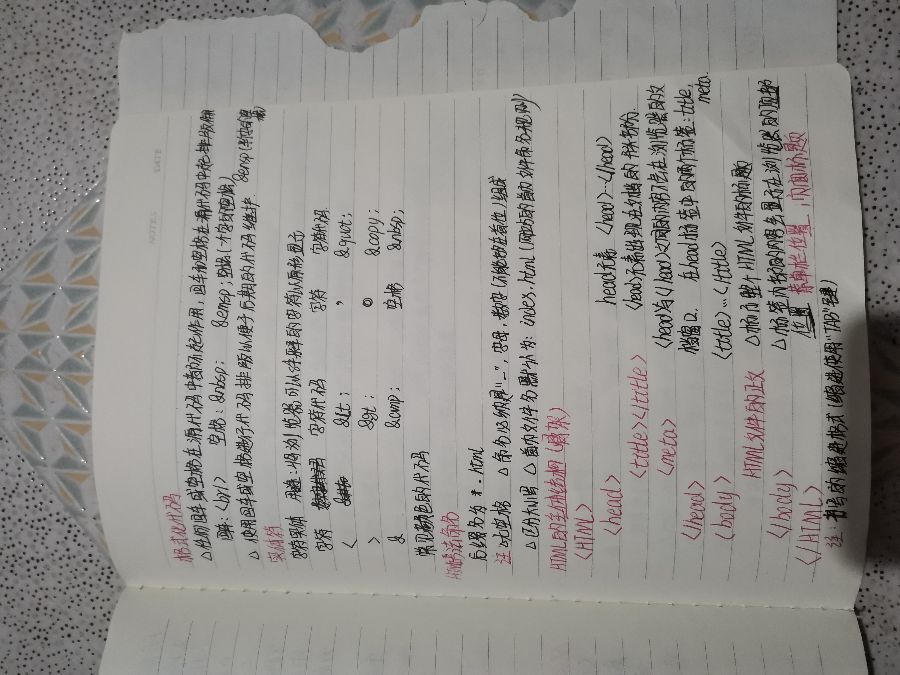 NOTES
DATE
格式化代码
△任何回车或空格在源代码中都不起作用，回车和空格在源代码中起排版作用
回车：<br/> 空格：&nbsp; &ensp;空格(半字的空格)
△使用回车或空格进行代码排版以便于后期的代码维护 &emsp(字符的宽度)
实体符
字符实体 用途：将浏览器可以解释的字符以原形显示
字符 字符代码 字符 字符代码
< &lt; " &quot;
> &gt; © &copy;
& &amp; 空格 &nbsp;
常见颜色的代码
后缀名为 *.html
注 △空格 △命名必须是"_"，字母，数字(不能放在首位)组成
△区分大小写 △首页文件名默认为：index.html(网站的首页文件命名规则)
HTML的主体结构(框架)
<HTML>
<head> head元素 <head>…</head>
<title></title> <head>元素出现在文档的开头部分.
<meta> <head>与</head>之间的内容不会在浏览器的文
</head> 档窗口. 在head标签中的两个标签：title, meta.
<body> <title>…</title>
HTML文件的正文 △标签定义HTML文件的标题
</body> △标签内的内容会显示在浏览器的顶部
</HTML> 位置 菜单栏位置, 网页标题
注 书写的缩进格式(缩进使用"TAB"键)